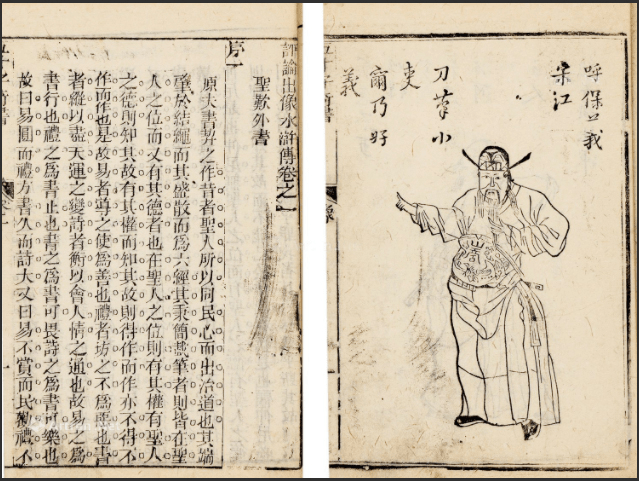 呼保義
宋江
刀筆小
吏
爾乃好
義
像
評論出像水滸傳卷之一
聖歎外書
序一
原夫書契之作昔者聖人所以同民心而出治道也其端
肇於結繩而其盛殽而為六經其秉簡載筆者則皆在聖
人之位而又有其德者也在聖人之位則有其權有聖人
之德則知其故有其權而知其故則得作而作亦不得不
作而作也是故易者導之使為善也禮者坊之不為惡也書
者縱以盡天運之變詩者衡以會人情之通也故易之為
書行也禮之為書止也書之為書可畏詩之為書可樂也
故曰易圓而禮方書久而詩大又曰易不賞而民勸禮不